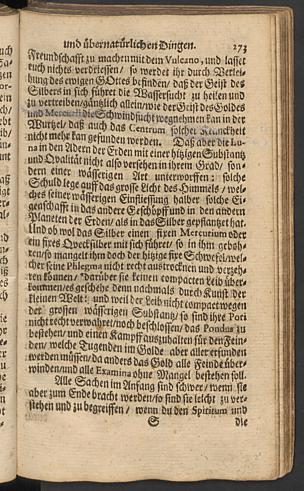 und übernatürlichen Dingen. 273
Freundschafft zu machen mit dem Vulcano, und lasset
euch nichts verdriessen / so werdet ihr durch Verlei-
hung des ewigen GOttes befinden / daß der Geist des
Silbers in sich führet die Wassersucht zu heilen und
zu vertreiben / gäntzlich allein / wie der Geist des Goldes
und Mercurii die Schwindsucht wegnehmen kan in der
Wurtzel / daß auch das Centrum solcher Kranckheit
nicht mehr kan gefunden werden. Daß aber die Lu-
na in den Adern der Erden mit einer hitzigen Substantz
und Qvalität nicht also versehen in ihrem Grad / son-
dern einer wässerigen Art unterworffen; solche
Schuld lege auff das grosse Licht des Himmels / wel-
ches seiner wässerigen Einfliessung halber solche Ei-
genschafft in das andere Geschöpff und in den andern
Planeten der Erden / als in das Silber gepflantzet hat.
Und ob wol das Silber einen fixen Mercurium oder
ein fixes Qvecksilber mit sich führet / so in ihm geboh-
ren / so mangelt ihm doch der hitzige fixe Schwefel / wel-
cher seine Phlegma nicht recht austrocknen und verzeh-
ren können / darüber sie keinen compacten Leib über-
kommen / es geschehe denn nachmals durch Kunst der
kleinen Welt: und weil der Leib nicht compact wegen
der grossen wässerigen Substantz / so sind ihre Pori
nicht recht verwahret / noch beschlossen / das Pondus zu
bestehen / und einen Kampff auszuhalten für den Fein-
den / welche Tugenden im Golde aber aller erfunden
werden müssen / da anders das Gold alle Feinde über-
winden / und alle Examina ohne Mangel bestehen soll.
Alle Sachen im Anfang sind schwer / wenn sie
aber zum Ende bracht werden / so sind sie leicht zu ver-
stehen und zu begreiffen / wenn du den Spiritum und
S die